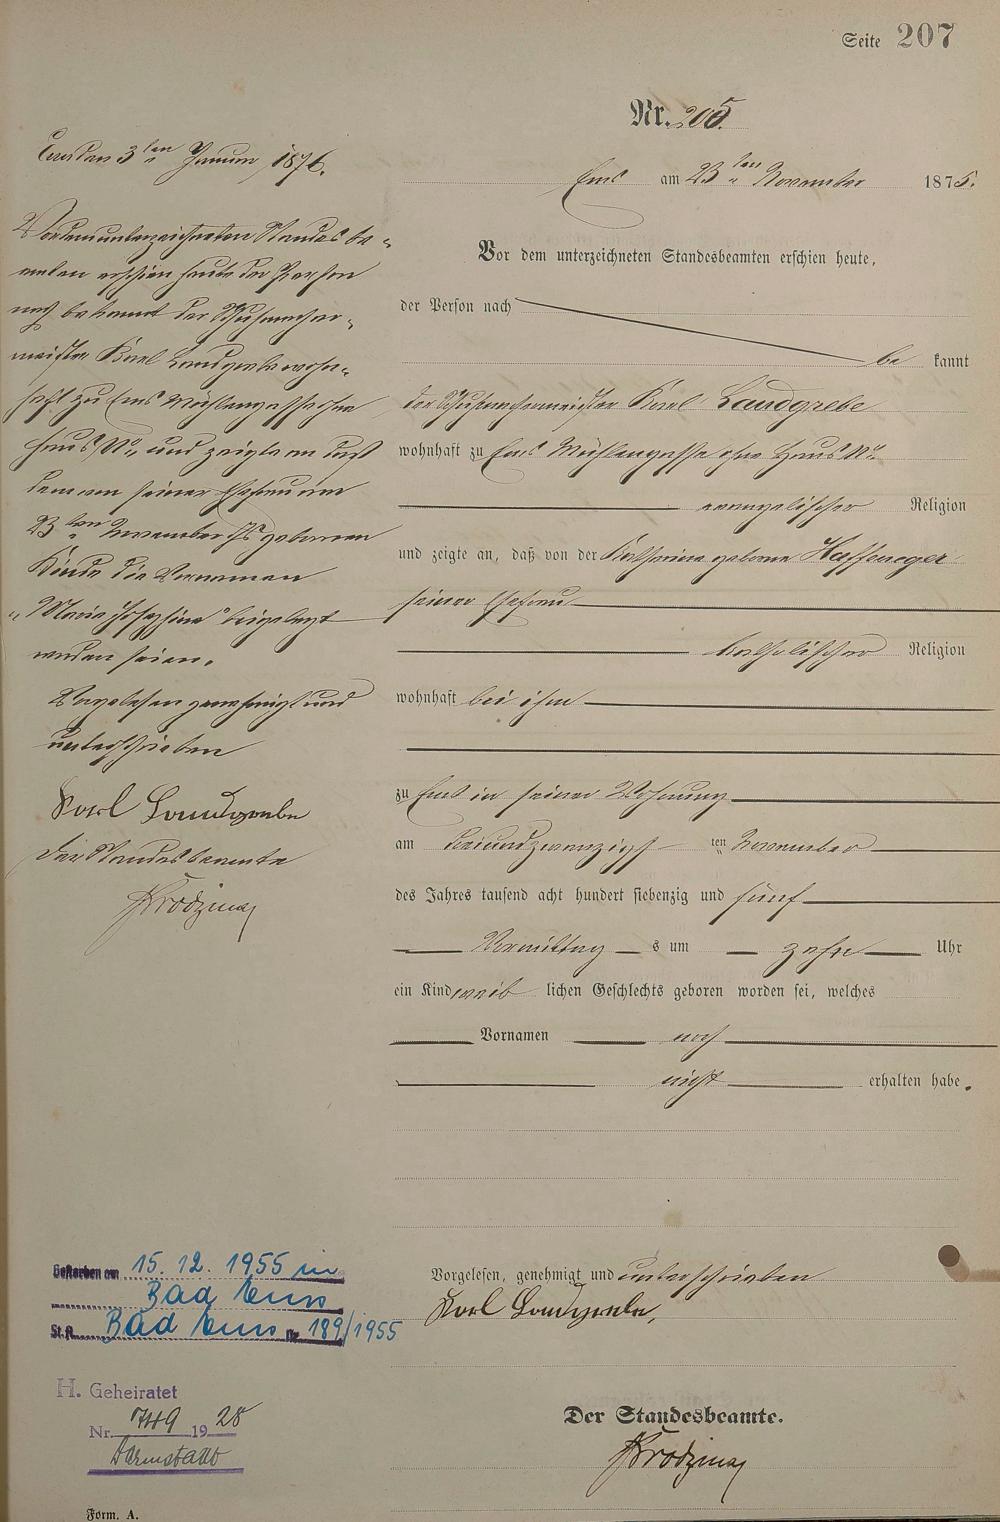 Seite 207
Nr. 205.
Ems am 23ten November 1875.
Vor dem unterzeichneten Standesbeamten erschien heute,
der Person nach
be kannt
der Schuhmachermeister Karl Landgrebe
wohnhaft zu Ems Mühlengasse ohne Haus No
evangelischer Religion
und zeigte an, daß von der Katharina geborne
seiner Ehefrau
katholischer Religion
wohnhaft bei ihm
zu Ems in seiner Wohnung
am dreiundzwanzigsten November
des Jahres tausend acht hundert siebenzig und fünf
Vormittag s um zehn Uhr
ein Kind weib lichen Geschlechts geboren worden sei, welches
Vornamen noch
nicht erhalten habe.
Vorgelesen, genehmigt und unterschrieben
Karl Landgrebe,
Der Standesbeamte.
Ems den 3ten Januar 1876.
Vor dem unterzeichneten Standesbe-
amten erschien heute der Person
nach bekannt der Schuhmacher-
meister Karl Landgrebe wohn-
haft zu Ems Mühlengasse ohne
Haus No und zeigte an daß
dem von seiner Ehefrau am
23ten November Js geborenen
Kinde die Vornamen
"Maria Josephine" beigelegt
worden seien.
Vorgelesen genehmigt und
unterschrieben
Karl Landgrebe
Der Standesbeamte
Gestorben am 15. 12. 1955 in
Bad Ems
St.A. Bad Ems Nr. 189/1955
H. Geheiratet
Nr. 749 1928
Darmstadt
Form. A.